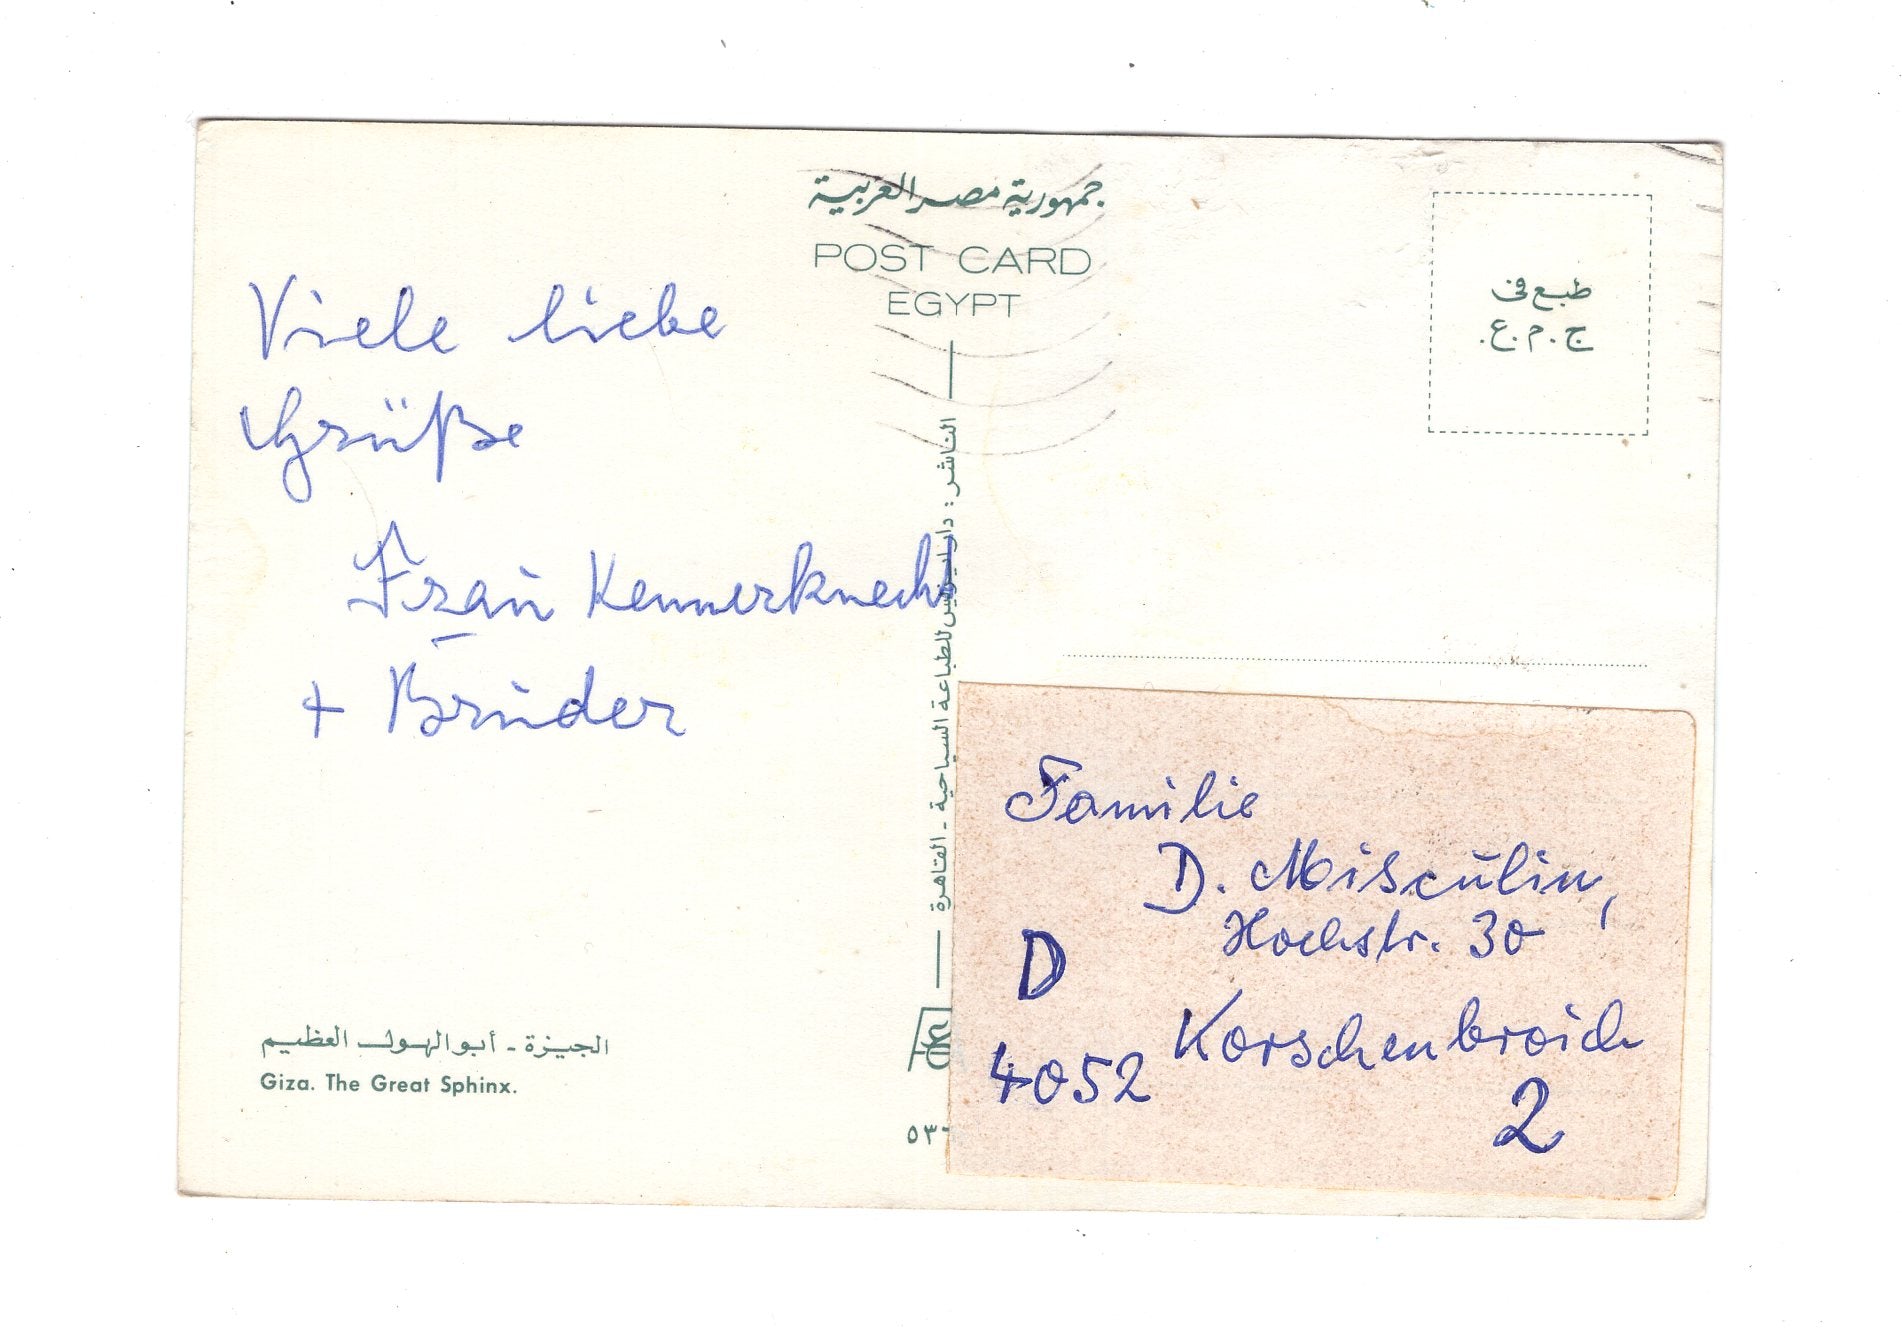 جمهورية مصر العربية
POST CARD
EGYPT
طبع فى
ج.م.ع.
Viele liebe
Grüße
Frau Kennerknecht
+ Bruder
الناشر : دار للطباعة السياحية - القاهرة
Familie
D. Misculin,
Hochstr. 30
D
4052 Korschenbroich
2
الجيزة - أبو الهول العظيم
Giza. The Great Sphinx.
٥٣